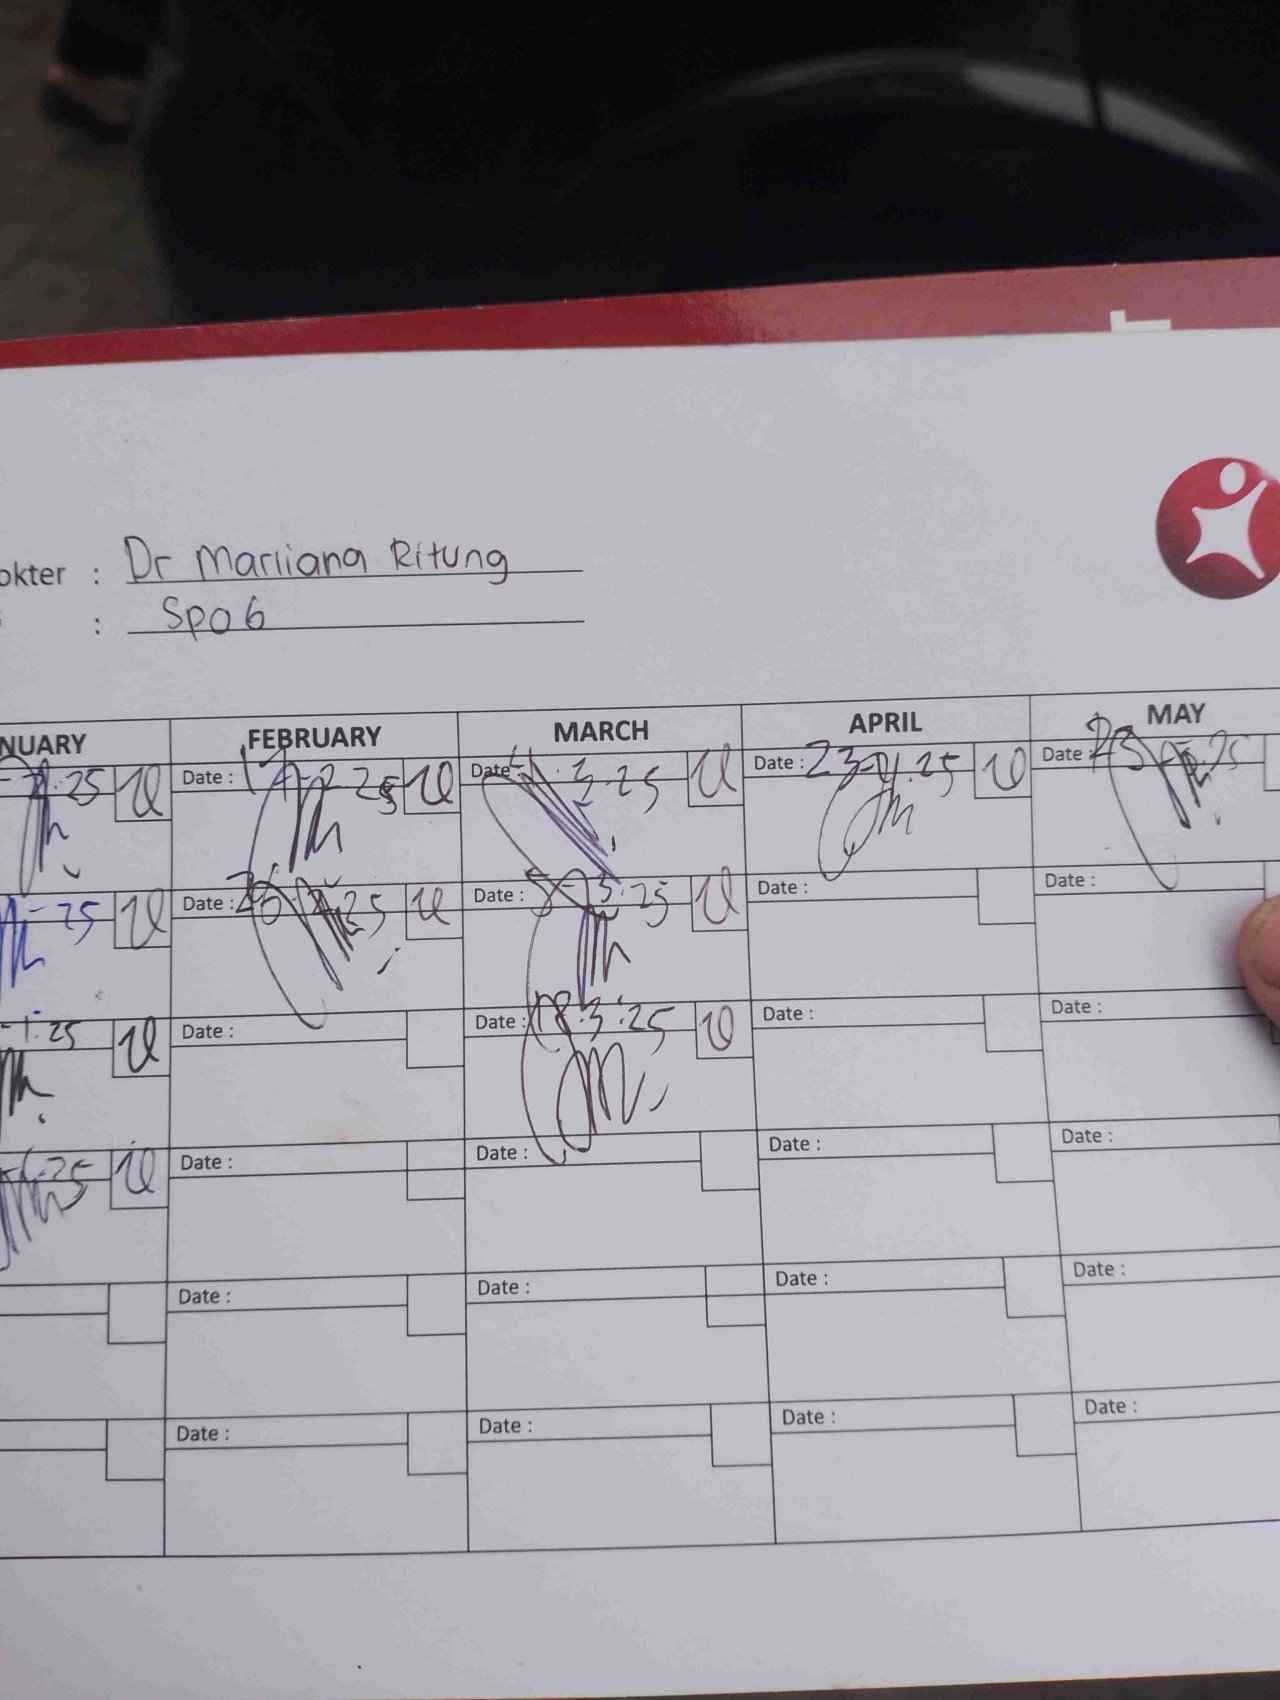 okter : Dr Marliana Ritung
: SpoG
NUARY FEBRUARY MARCH APRIL MAY
25 Date : Date : 3-25 Date : 23-4.25 Date : 23 25
25 Date : 26 25 Date : 5-3-25 Date : Date :
1-25 Date : Date : 18-3-25 Date : Date :
25 Date : Date : Date : Date :
Date : Date : Date : Date :
Date : Date : Date : Date :